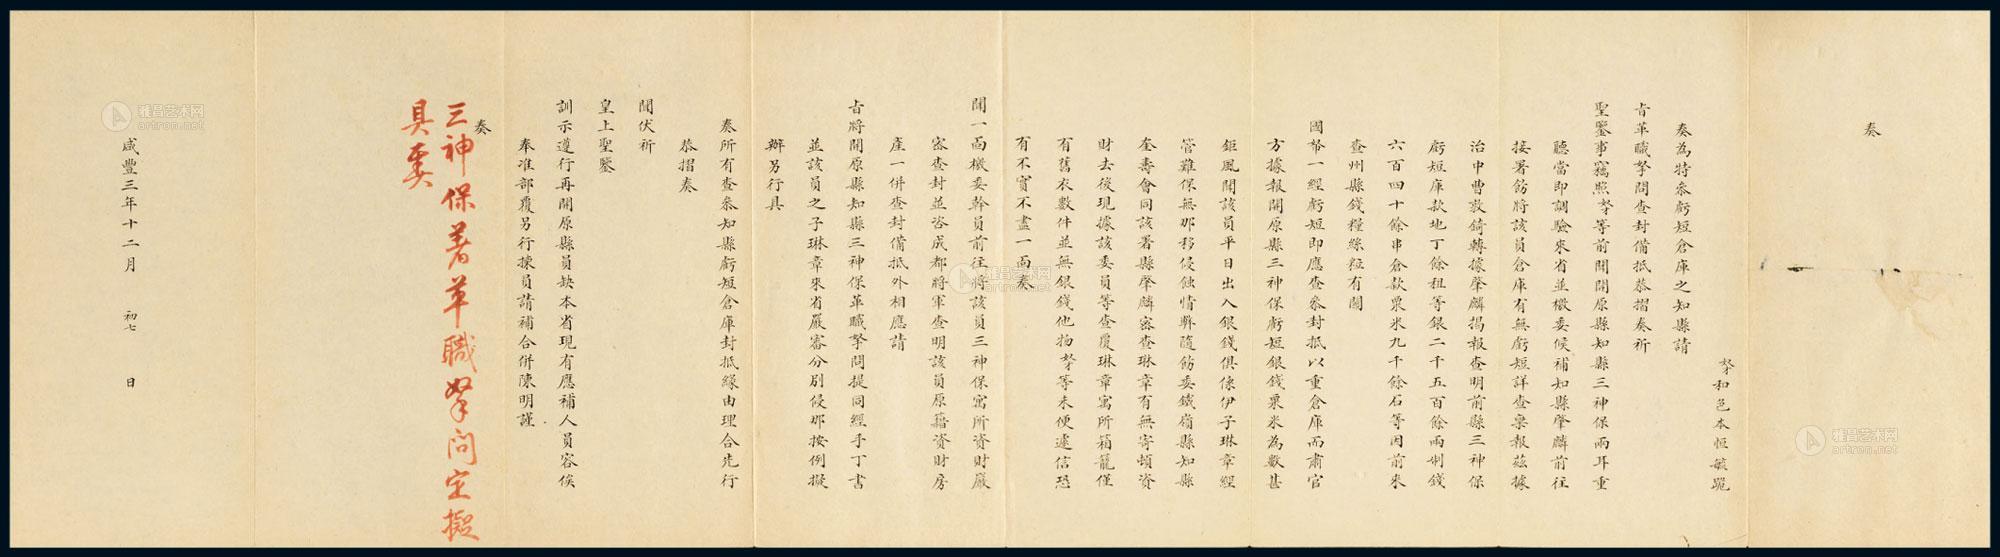 奏
奴才和色本恒毓跪
奏為特參虧短倉庫之知縣請
旨革職拏問查封備抵恭摺奏祈
聖鑒事竊照奴才等前聞開原縣知縣三神保兩耳重
聽當即調驗來省並檄委候補知縣肇麟前往
接署飭將該員倉庫有無虧短詳查稟報茲據
治中曹敦錡轉據肇麟揭報查明前縣三神保
虧短庫款地丁餘租等銀二千五百餘兩制錢
六百四十餘串倉款粟米九千餘石等因前來
查州縣錢糧絲粒有關
國帑一經虧短即應查參封抵以重倉庫而肅官
方據報開原縣三神保虧短銀錢粟米為數甚
鉅風聞該員平日出入銀錢俱係伊子琳章經
管難保無那移侵蝕情弊隨飭委鐵嶺縣知縣
奎壽會同該署縣肇麟密查琳章有無寄頓資
財去後現據該委員等查覆琳章寓所箱籠僅
有舊衣數件並無銀錢他物奴才等未便遽信恐
有不實不盡一面奏
聞一面檄委幹員前往將該員三神保寓所資財嚴
密查封並咨成都將軍查明該員原籍資財房
產一併查封備抵外相應請
旨將開原縣知縣三神保革職拏問提同經手丁書
並該員之子琳章來省嚴審分別侵那按例擬
辦另行具
奏所有查參知縣虧短倉庫封抵緣由理合先行
恭摺奏
聞伏祈
皇上聖鑒
訓示遵行再開原縣員缺本省現有應補人員容俟
奉准部覆另行揀員請補合併陳明謹
奏
三神保著革職拏問定擬
具奏
咸豐三年十二月 初七 日
雅昌艺术网
artron.net
雅昌艺术网
artron.net
雅昌艺术网
artron.net